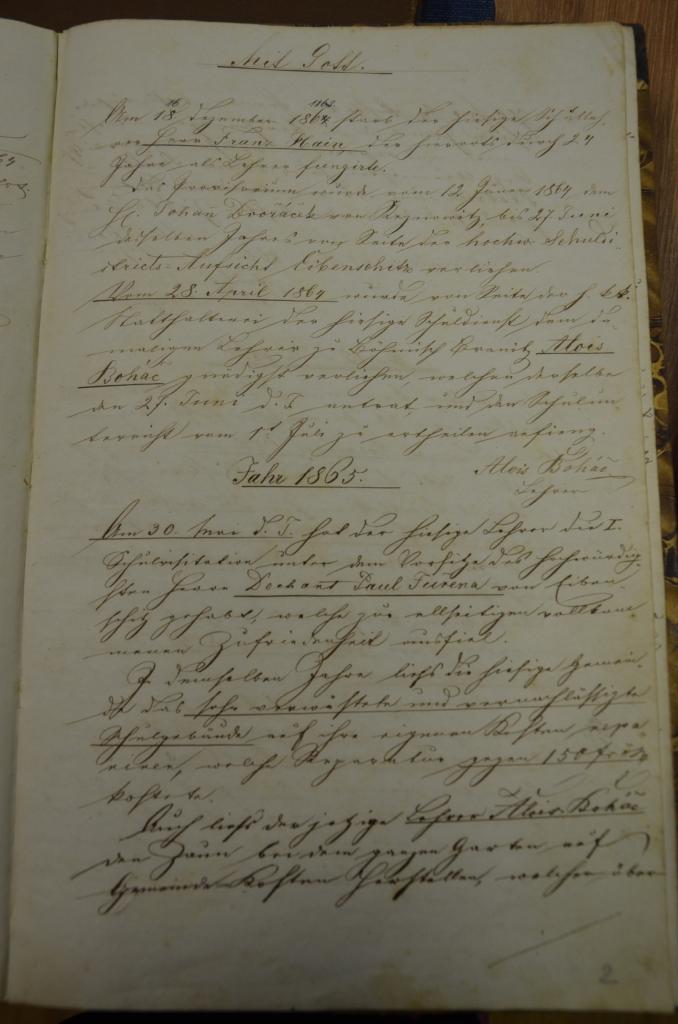 Mit Gott.
Am 18 Dezember 1864 starb der hiesige Schulleh-
16
1863
rer Herr Franz Hain, der hierorts durch 24
Jahre als Lehrer fungirte.
Das Provisorium wurde vom 12. Jäner 1864 dem
H. Johañ Dvořáček von Regnowitz, bis 27 Juni
desselben Jahres von Seite der hochw. Schuldi-
stricts-Aufsicht Eibenschitz verliehen.
Vom 28. April 1864 wurde von Seite der h. k. k.
Statthalterei der hiesige Schuldienst dem da-
maligen Lehrer zu Böhmisch Branitz Alois
Boháč gnädigst verliehen, welchen derselbe
den 27. Juni d. J. antrat und den Schulun-
terricht vom 1t Juli zu ertheilen anfieng.
Alois Boháč
Lehrer
Jahr 1865.
Am 30. Mai d. J. hat der hiesige Lehrer die I.
Schulvisitation unter dem Vorsitze des hochwürdig-
sten Herrn Dechant Paul Turena von Eiben-
schitz gehabt, welche zur allseitigen vollkom-
menen Zufriedenheit ausfiel.
In demselben Jahre ließ die hiesige Gemein-
de das sehr verwüstete und vernachlässigte
Schulgebäude auf ihre eigenen Kosten repa-
rieren, welche Reparatur gegen 150 f
kostete.
Auch ließ der jetzige Lehrer Alois Boháč
den Zaun bei dem ganzen Garten auf
Gemeinde-Kosten herstellen, welcher über
2